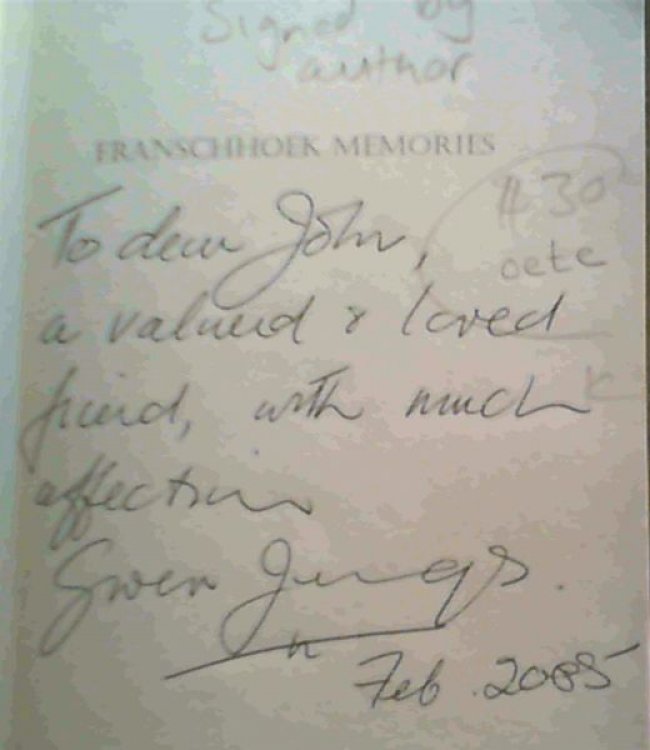 Signed by
author
FRANSCHHOEK MEMORIES
To dear John,
R30
a valued & loved
friend, with much
affection
Gwen
Feb. 2005